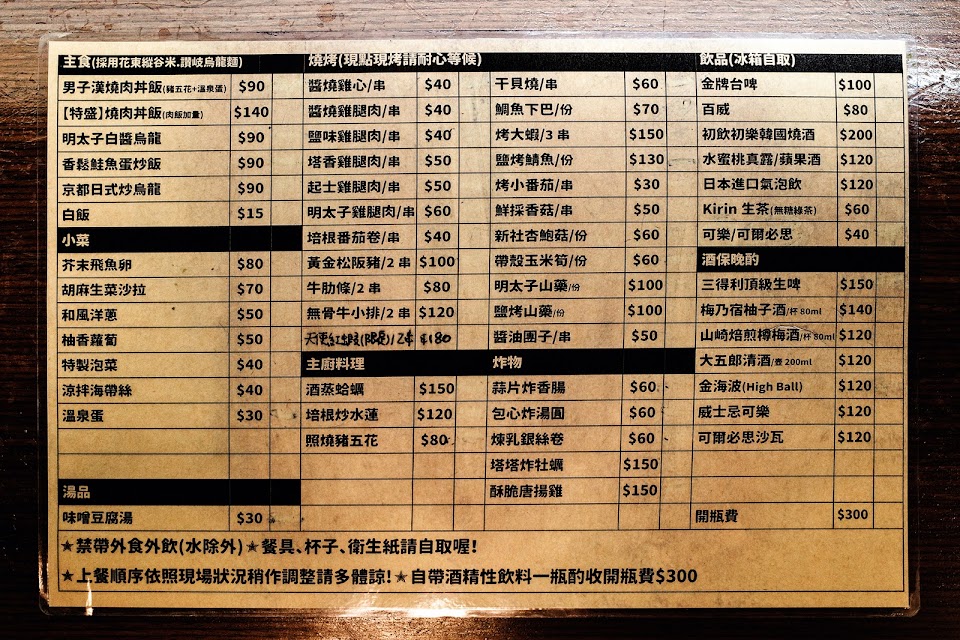 主食(採用花東縱谷米.讚岐烏龍麵)
男子漢燒肉丼飯(豬五花+溫泉蛋) $90
【特盛】燒肉丼飯(肉飯加量) $140
明太子白醬烏龍 $90
香鬆鮭魚蛋炒飯 $90
京都日式炒烏龍 $90
白飯 $15
小菜
芥末飛魚卵 $80
胡麻生菜沙拉 $70
和風洋蔥 $50
柚香蘿蔔 $50
特製泡菜 $40
涼拌海帶絲 $40
溫泉蛋 $30
湯品
味噌豆腐湯 $30
燒烤(現點現烤請耐心等候)
醬燒雞心/串 $40
醬燒雞腿肉/串 $40
鹽味雞腿肉/串 $40
塔香雞腿肉/串 $50
起士雞腿肉/串 $50
明太子雞腿肉/串 $60
培根番茄卷/串 $40
黃金松阪豬/2 串 $100
牛肋條/2 串 $80
無骨牛小排/2 串 $120
$180
主廚料理
酒蒸蛤蠣 $150
培根炒水蓮 $120
照燒豬五花 $80
干貝燒/串 $60
鯛魚下巴/份 $70
烤大蝦/3 串 $150
鹽烤鯖魚/份 $130
烤小番茄/串 $30
鮮採香菇/串 $50
新社杏鮑菇/份 $60
帶殼玉米筍/份 $60
明太子山藥/份 $100
鹽烤山藥/份 $100
醬油團子/串 $50
炸物
蒜片炸香腸 $60
包心炸湯圓 $60
煉乳銀絲卷 $60
塔塔炸牡蠣 $150
酥脆唐揚雞 $150
飲品(冰箱自取)
金牌台啤 $100
百威 $80
初飲初樂韓國燒酒 $200
水蜜桃真露/蘋果酒 $120
日本進口氣泡飲 $120
Kirin 生茶(無糖綠茶) $60
可樂/可爾必思 $40
酒保晚酌
三得利頂級生啤 $150
梅乃宿柚子酒/杯 80ml $140
山崎焙煎樽梅酒/杯 80ml $120
大五郎清酒/壺 200ml $120
金海波(High Ball) $120
威士忌可樂 $120
可爾必思沙瓦 $120
開瓶費 $300
★禁帶外食外飲(水除外)★餐具、杯子、衛生紙請自取喔!
★上餐順序依照現場狀況稍作調整請多體諒!★自帶酒精性飲料一瓶酌收開瓶費$300